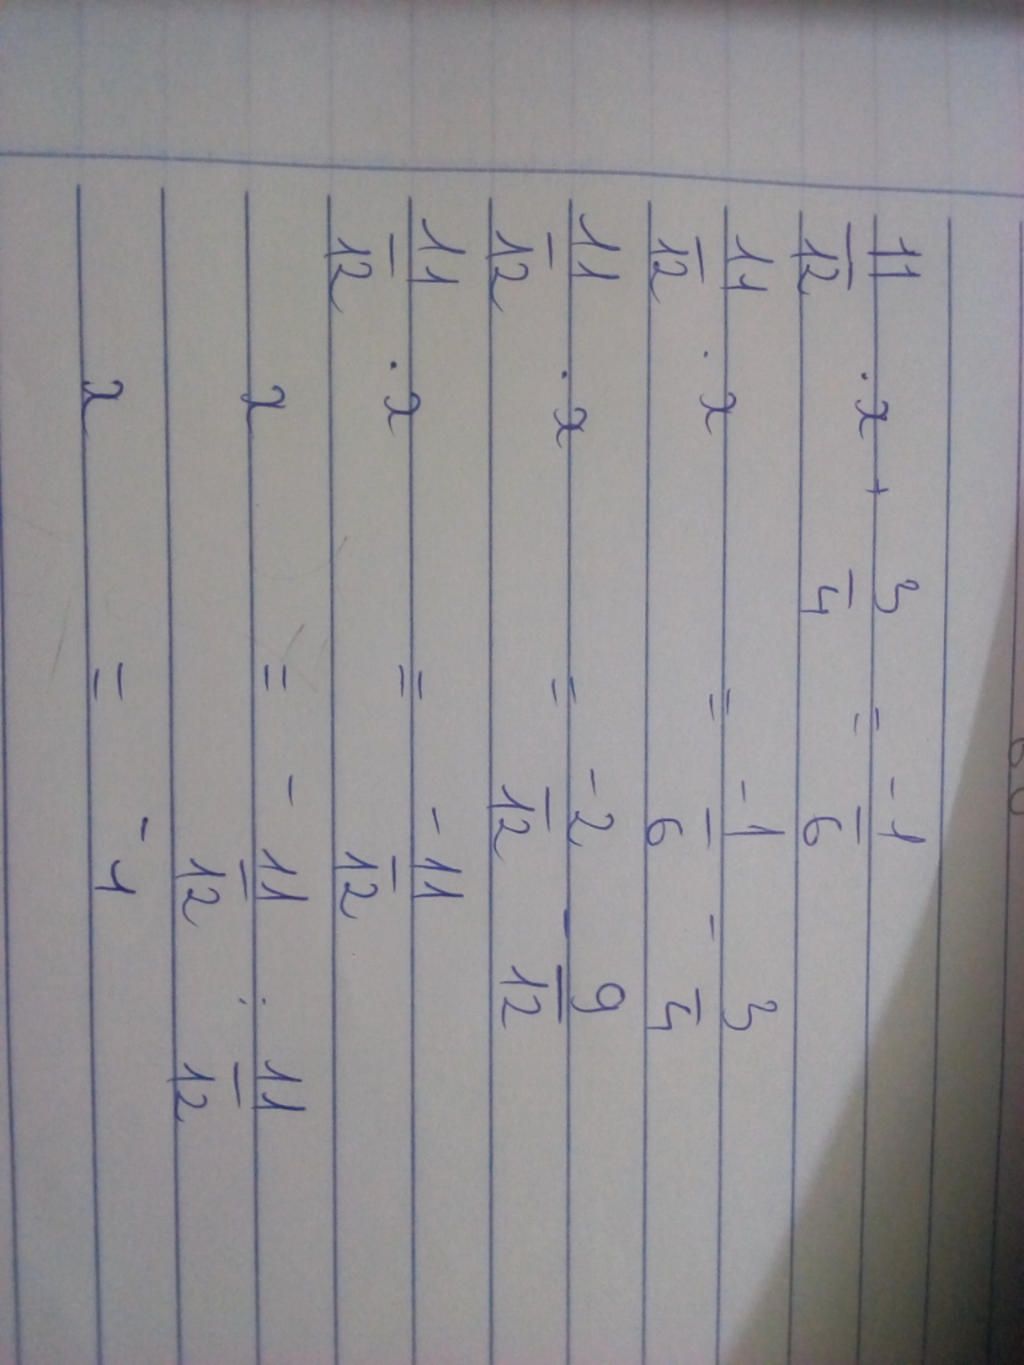 11/12 · x + 3/4 = -1/6
11/12 · x = -1/6 - 3/4
11/12 · x = -2/12 - 9/12
11/12 · x = -11/12
x = - 11/12 : 11/12
x = -1